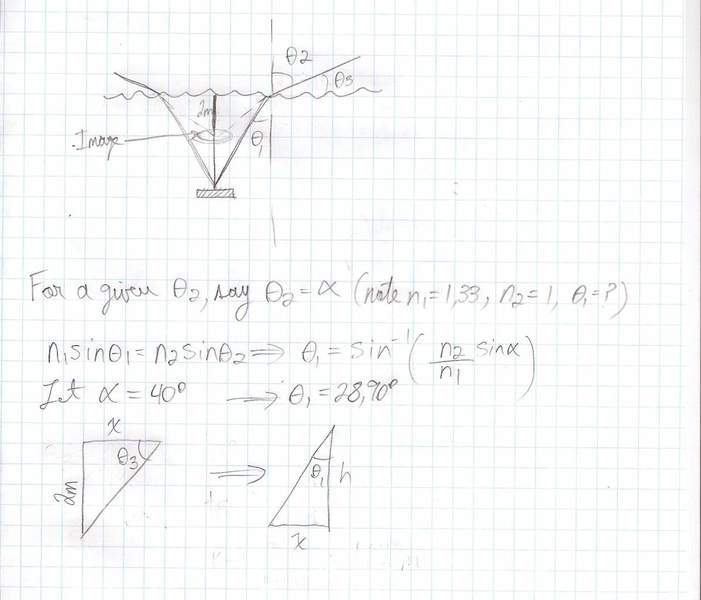 θ2
θ3
2m
Image
θ1
For a given θ2, say θ2 = α (note n1 = 1,33, n2 = 1, θ1 = ?)
n1 sinθ1 = n2 sinθ2 ⟹ θ1 = sin⁻¹ (n2/n1 sinα)
Let α = 40° → θ1 = 28,90°
x
θ3
2m
⟹
θ1
h
x